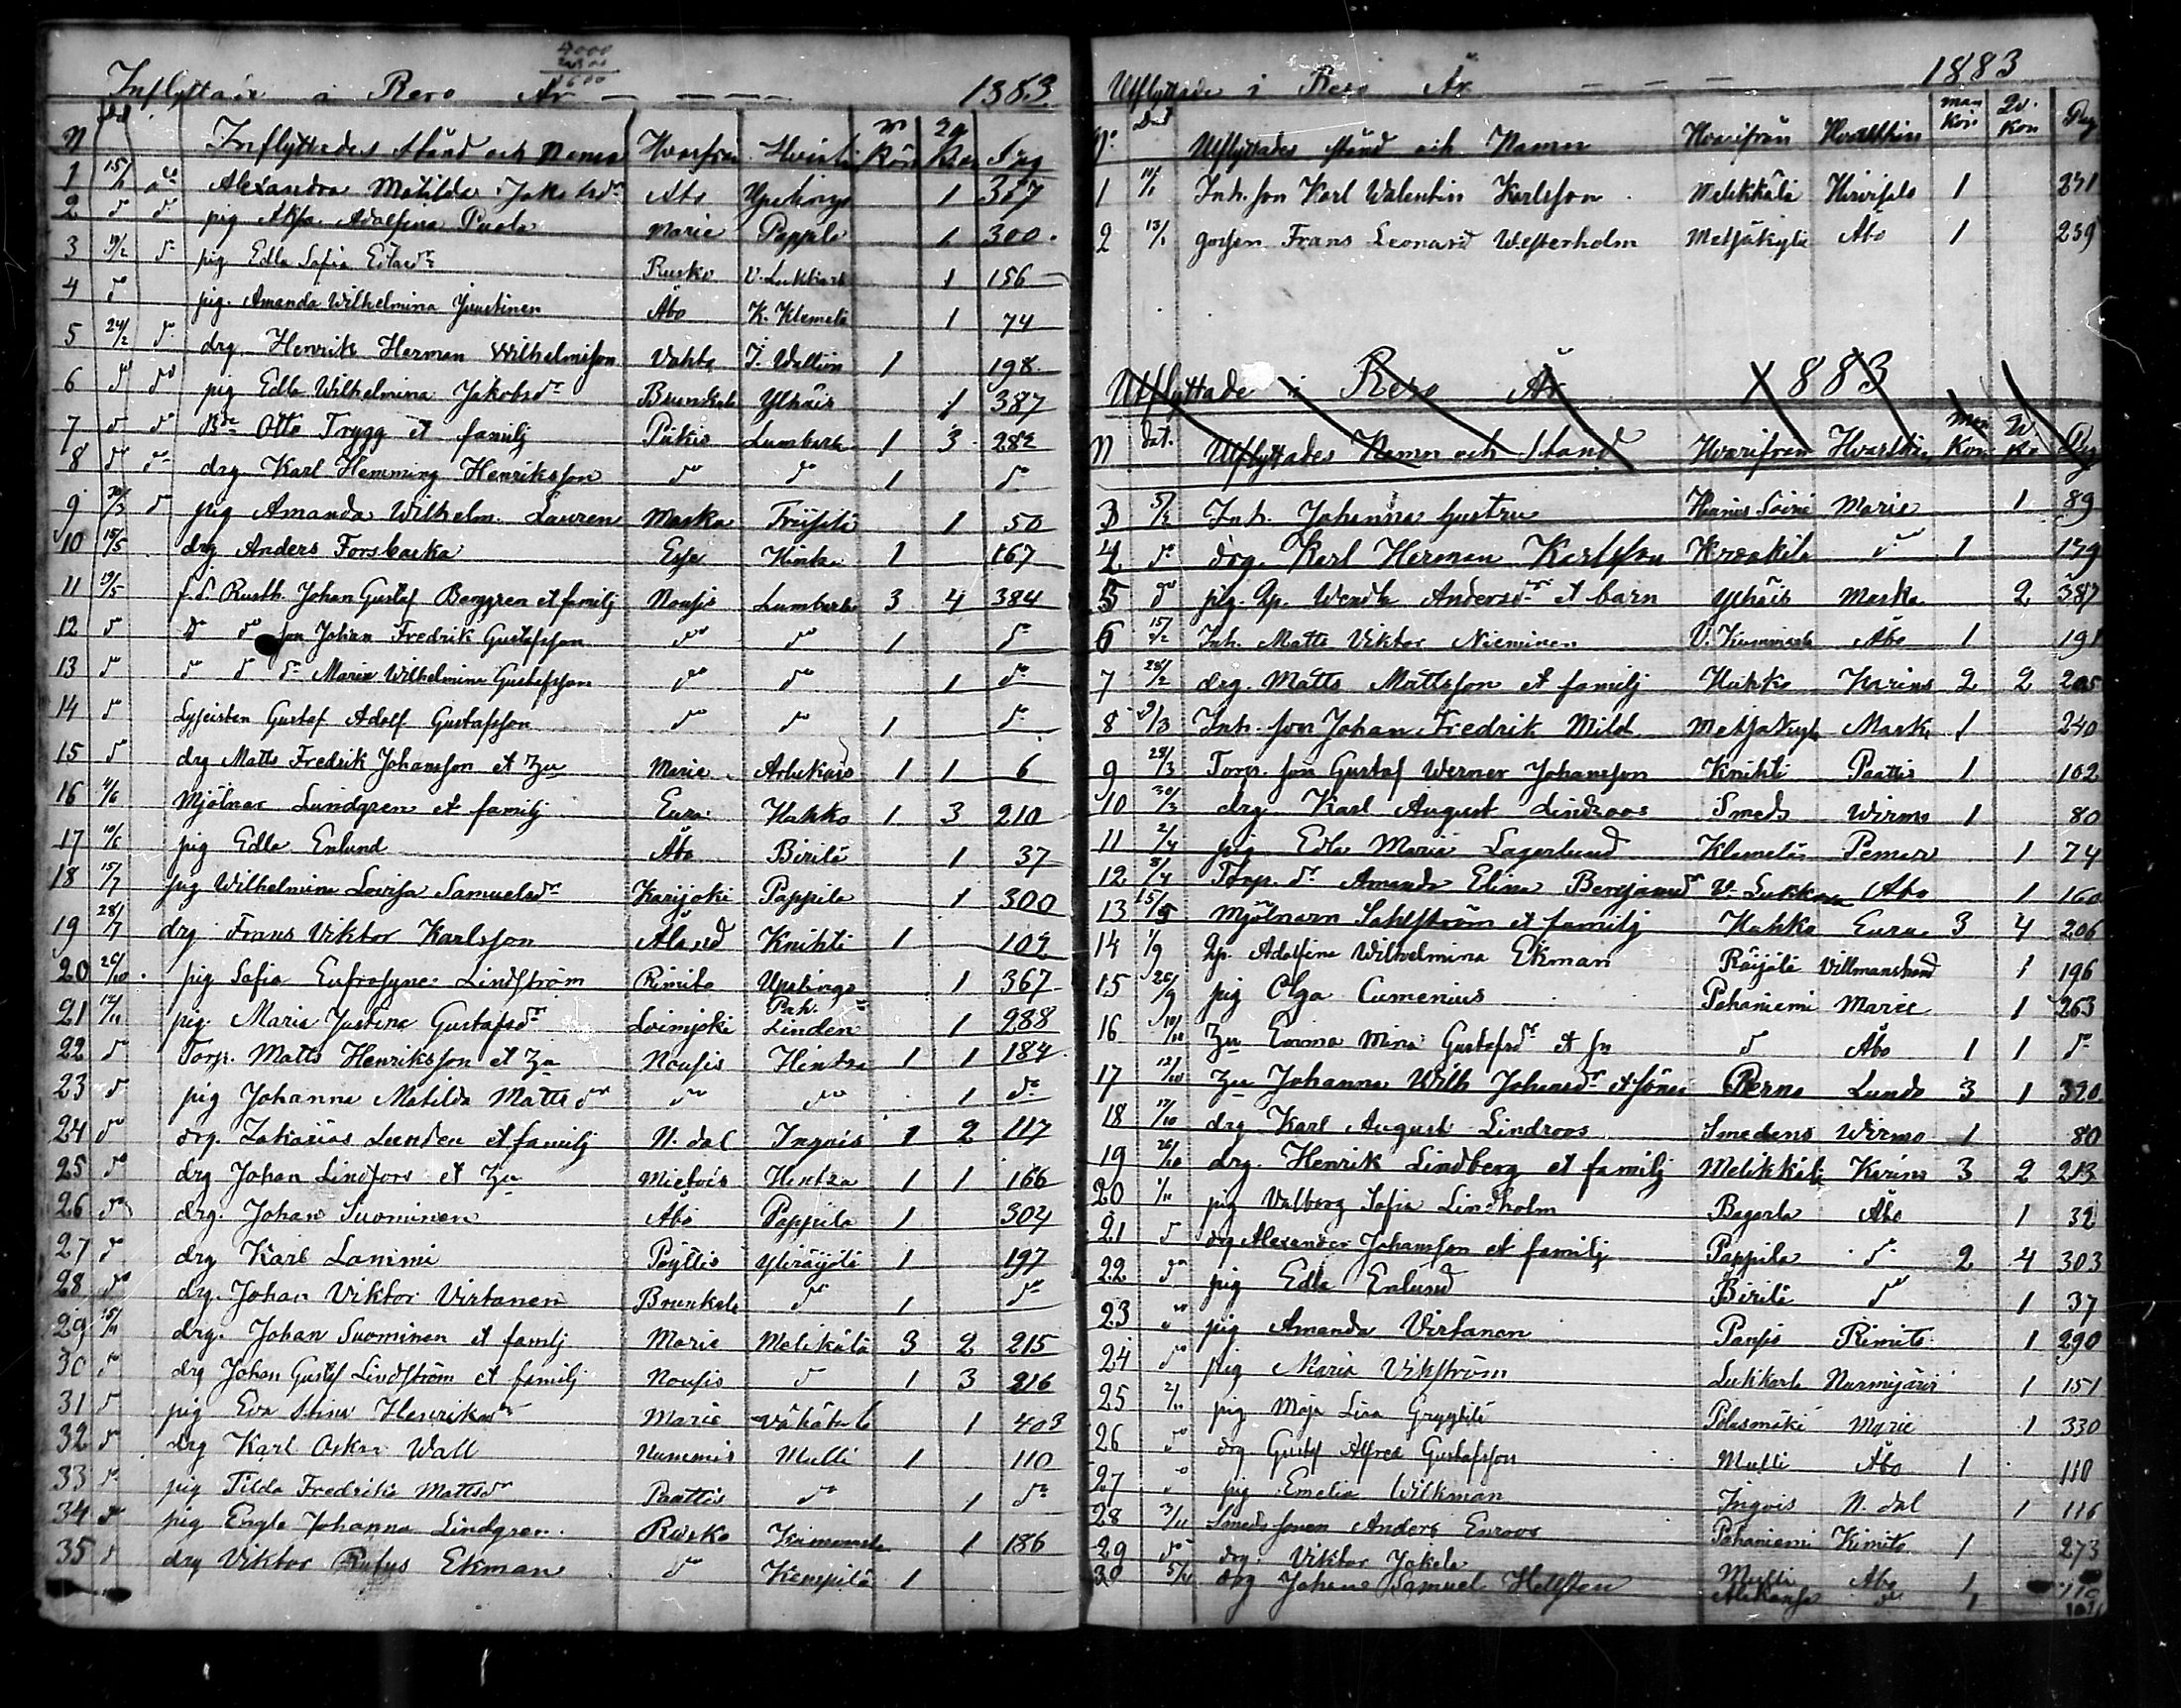 4000
1600
Inflyttade i Reso År 1883
N Dat Inflyttades Stånd och Namn Hvarifrån Hvartill M Kön Qv Kön Pag
1 15/1 Alexandra Matilda Jakobsdr Åbo Upalinga 1 367
2 do do pig Adolfina Marie Pappila 1 300
3 19/2 do pig Edla Sofia Rusko V. Lukkarla 1 156
4 do pig. Amanda Wilhelmina Juustinen Åbo K. Klemelä 1 74
5 24/2 do drg Henrik Herman Wilhelmsson Vahto 1 198
6 do do pig Edla Wilhelmina Jakobsdr Brunkala Ylhäis 1 387
7 do do Otto Trygg et familj Pikis Lumbarla 1 3 282
8 do do drg Karl Hemming Henriksson do do 1 do
9 20/3 do pig Amanda Wilhelm. Lauren Maska 1 50
10 15/5 drg Anders Forsbacka Kintza 1 167
11 19/5 f.d. Rusth. Johan Gustaf Berggren et familj Nousis Lumbarla 3 4 384
12 do do do son Johan Fredrik Gustafsson do do 1 do
13 do do do do Maria Wilhelmina Gustafsson do do 1 do
14 do Gustaf Adolf Gustafsson do do 1 do
15 do drg Matts Fredrik Johansson et hu Marie 1 1 6
16 4/6 Mjölnar Lundgren et familj Eura Hahko 1 3 210
17 10/6 pig Edla Enlund Åbo Birilä 1 37
18 15/7 pig Wilhelmina Lovisa Samuelsdr Karijoki Pappila 1 300
19 28/7 drg Frans Viktor Karlsson Åland Knihti 1 102
20 26/10 pig Sofia Eufrosyne Lindström Rimito Upalinga 1 367
21 12/11 pig Maria Justina Gustafsdr Loimjoki Pah. Linden 1 288
22 do Torp. Matts Henriksson et hu Nousis Hintza 1 1 184
23 do pig Johanna Matilda Mattsdr do do 1 do
24 do drg. Zakarias Lunden et familj N. dal Ingois 1 2 117
25 do drg Johan Lindfors et hu Mietois Hintza 1 1 166
26 do drg. Johan Suominen Åbo Pappila 1 304
27 do drg Karl Lammi Pöyttis Yliräijölä 1 197
28 do drg. Johan Viktor Virtanen Brunkala do 1 do
29 15/11 drg. Johan Suominen et familj Marie Melikälä 3 2 215
30 do drg Johan Gustaf Lindström et familj Nousis do 1 3 216
31 do pig Eva Stina Henriksdr Marie 1 403
32 do drg Karl Oskar Wall Nummis Mulli 1 110
33 do pig Tilda Fredrika Mattsdr Paattis do 1 do
34 do pig Engla Johanna Lindgren Rusko 1 186
35 do drg Viktor Rufus Ekman do Kempilä 1
Utflyttade i Reso År 1883
No Dat Utflyttades stånd och Namn Hvarifrån Hvarthin man kön Qv. kön Pag
1 Inh. son Karl Walentin Karlsson Melikkälä Hirvisalo 1 231
2 13/1 gossen Frans Leonard Westerholm Metsäkylä Åbo 1 239
Utflyttade i Reso År 1883
N dat. Utflyttades Namn och Stånd Hvarifrån Hvarthin man Kön Qv Kön Pag
3 5/2 Inh. Johanna Gustava Marie 1 89
4 do drg. Karl Herman Karlsson do 1 179
5 do pig. Qp. Wendla Andersdr et barn Ylhäis Maska 2 387
6 15/2 Inh. Matts Viktor Nieminen Åbo 1 191
7 28/2 drg. Matts Mattsson et familj Hahko Karins 2 2 205
8 9/3 Inh. son Johan Fredrik Mild Metsäkylä Masku 1 240
9 28/3 Torp. son Gustaf Werner Johansson Knihti Paattis 1 102
10 30/3 drg Karl August Lindroos Smeds Wirmo 1 80
11 2/4 pig Edla Maria Lagerlund Klemelä Pemar 1 74
12 8/4 Torp. dr Amanda Elina Benjamsdr V. Lukkarla Åbo 1 160
13 15/5 Mjölnarn Sahlström et familj Hahko Eura 3 4 206
14 1/9 Qp. Adolfina Wilhelmina Ekman Räijälä Villmanstrand 1 196
15 26/9 pig Olga Cumenius Pahaniemi Marie 1 263
16 10/10 hu Emma Mina Gustafsdr et sn do Åbo 1 1 do
17 12/10 hu Johanna Wilh Johansdr et söner Perno Lundo 3 1 320
18 17/10 drg Karl August Lindroos Smedens Wirmo 1 80
19 26/10 drg. Henrik Lindberg et familj Melikkälä Karins 3 2 213
20 1/11 pig Valborg Sofia Lindholm Bagarla Åbo 1 32
21 do drg Alexander Johansson et familj Pappila do 2 4 303
22 do pig Edla Enlund Birilä do 1 37
23 do pig Amanda Virtanen Pansio Rimito 1 290
24 do pig Maria Vikström Lukkarla Nurmijärvi 1 151
25 2/11 pig Maja Lisa Marie 1 330
26 do drg. Gustaf Alfred Gustafsson Mulli Åbo 1 110
27 do pig Emelia Wilkman Ingois N. dal 1 116
28 3/11 Smeds sonen Anders Enroos Pahaniemi Kimito 1 273
29 do drg. Viktor Jokela Mulli Åbo 1 110
30 5/11 drg Johan Samuel Hellsten do 1